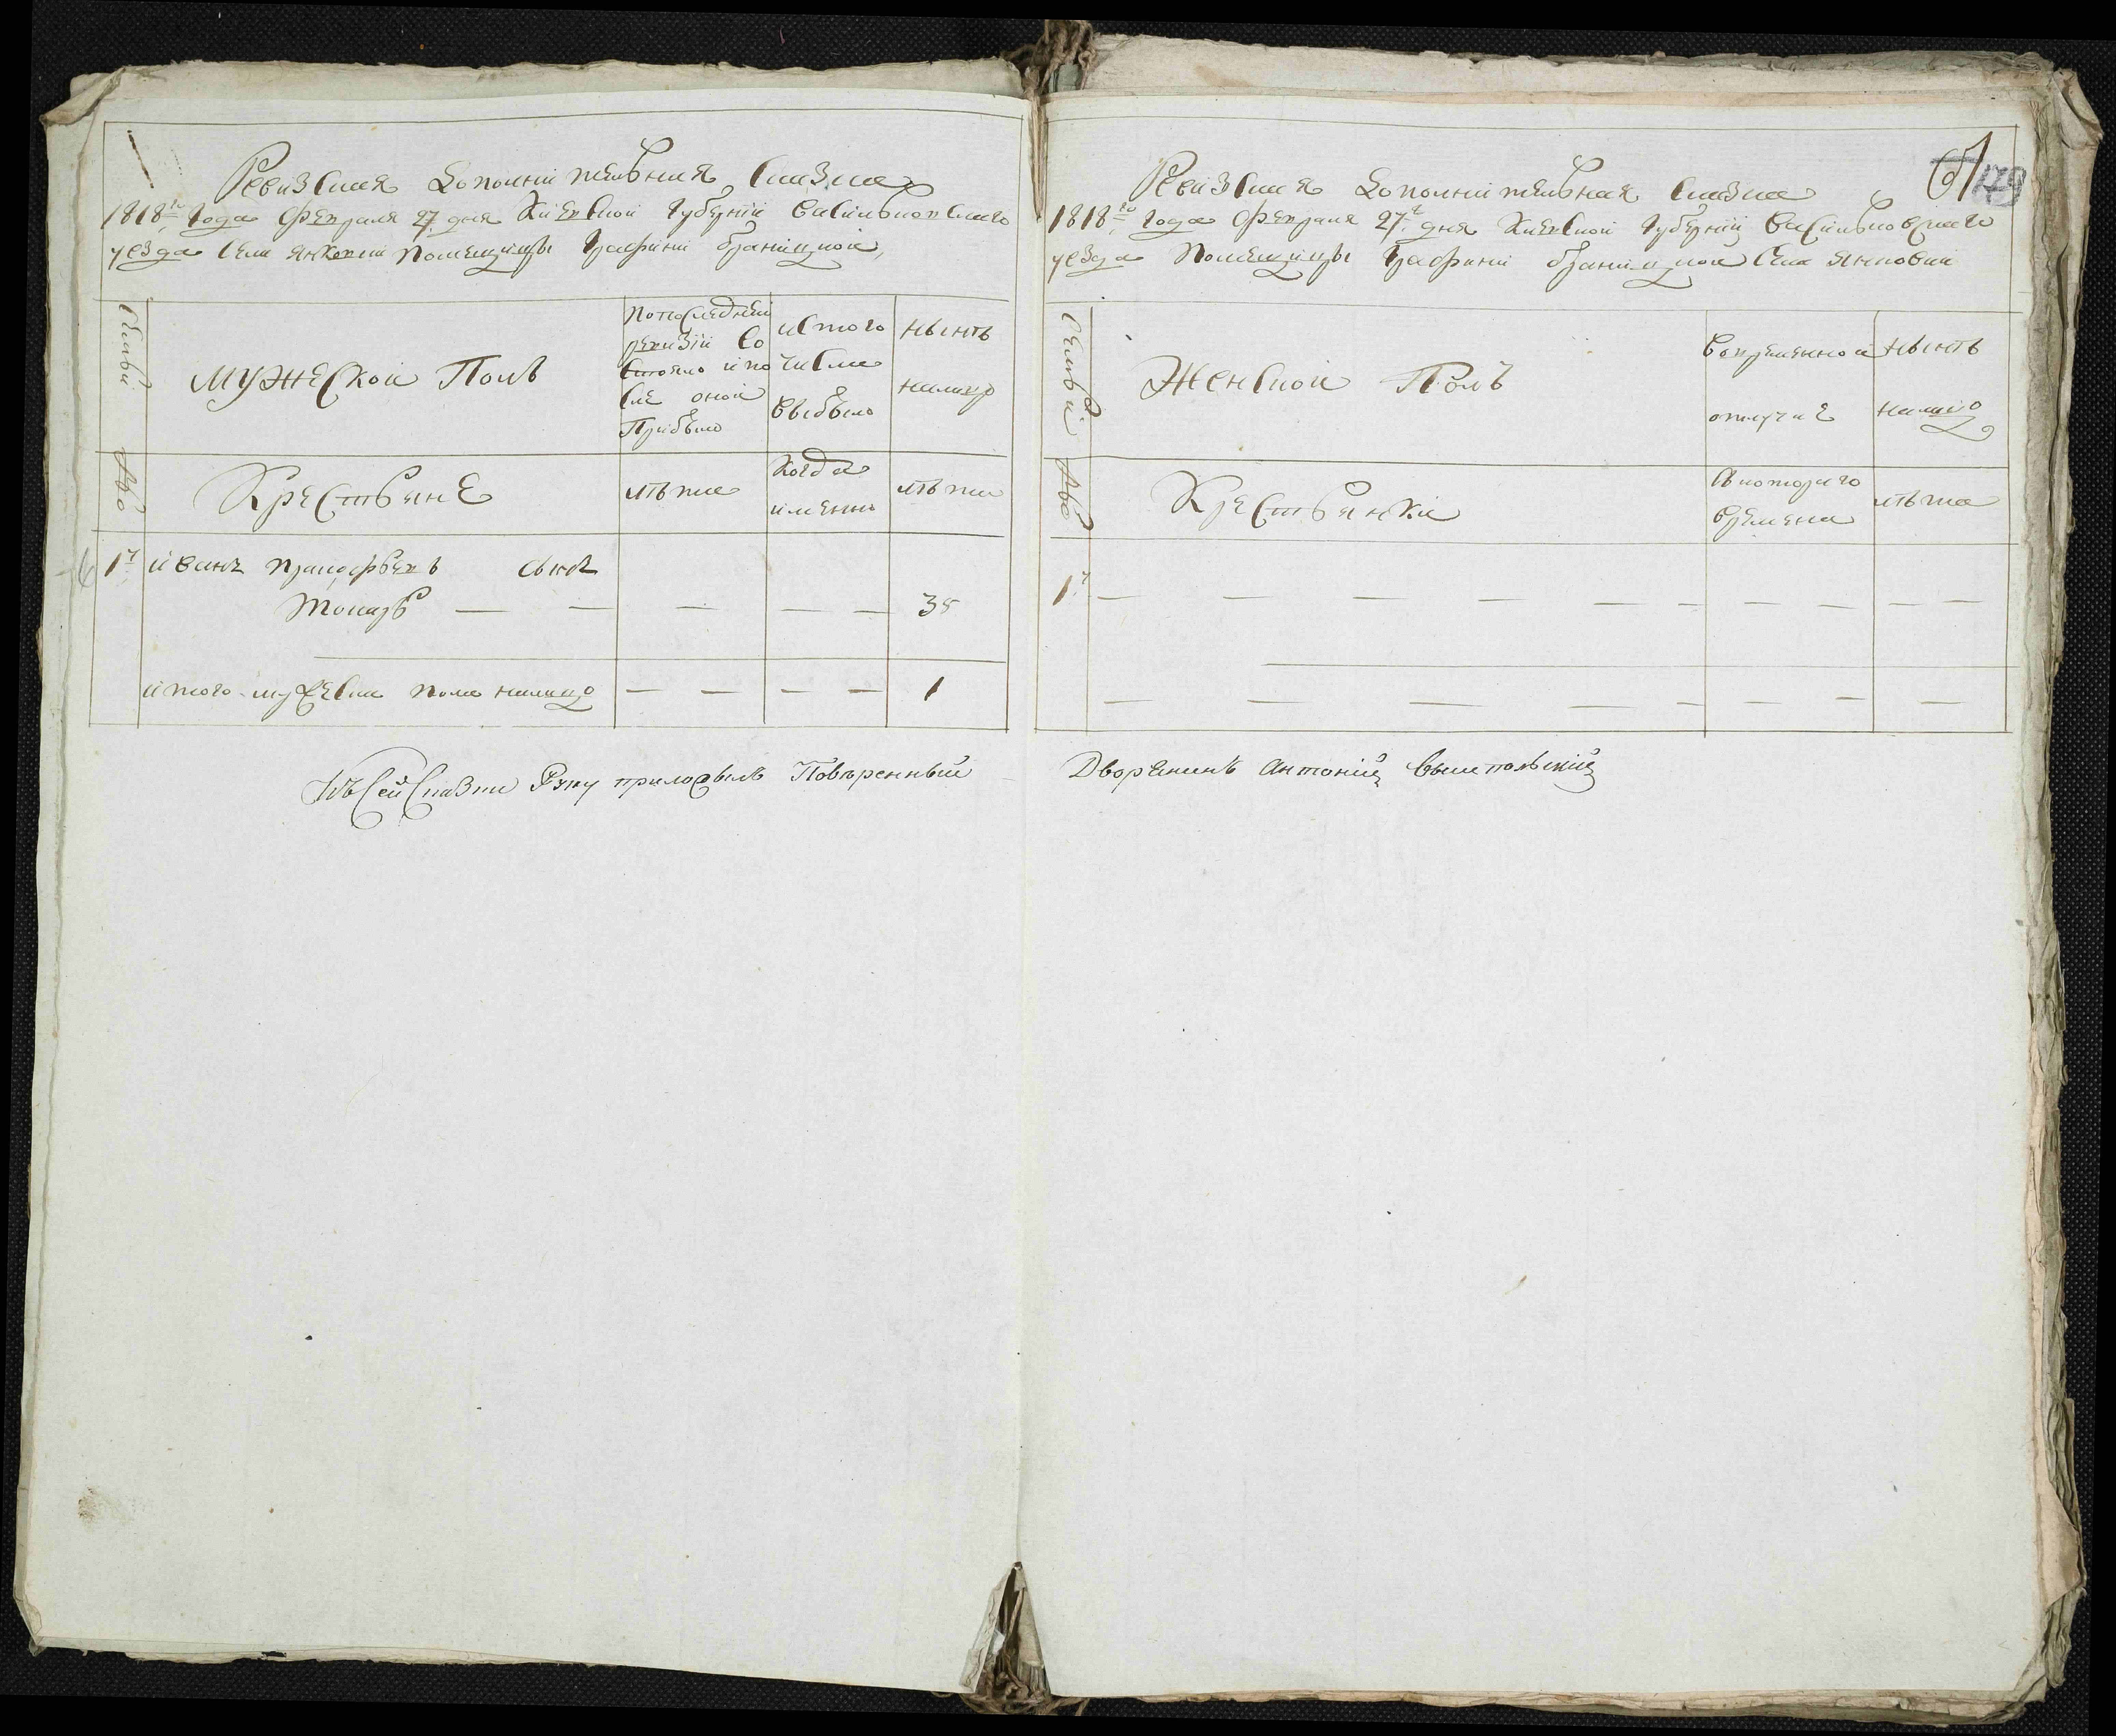 Ревизская дополнительная сказка
1818го года февраля 27 дня Киевской губернии Васильковскаго
уезда села Янковки помещицы графини Браницкой
Семьи
Мужеской Полъ
По последней
ревизии со
стояло и по
сле оной
Прибыло
ис того
числа
выбыло
нынѣ
налицо
№о
Крестьяне
лѣта
когда
именно
лѣта
1й
иванъ сынъ
— — — — — 35
итого мужеска пола налицо — — — — 1
Къ сей сказки Руку приложилъ Повѣренный
61 179
Ревизская дополнительная сказка
1818го года февраля 27 дня Киевской губернии Васильковскаго
уезда помещицы графини Браницкой села Янковки
Семьи
Женской Полъ
во временной
отлучке
нынѣ
налицо
№о
Крестьянки
съ котораго
времени
лѣта
1й — — — — — — — — — —
— — — — — — — —
Дворянинъ Антоній Вышепольскій